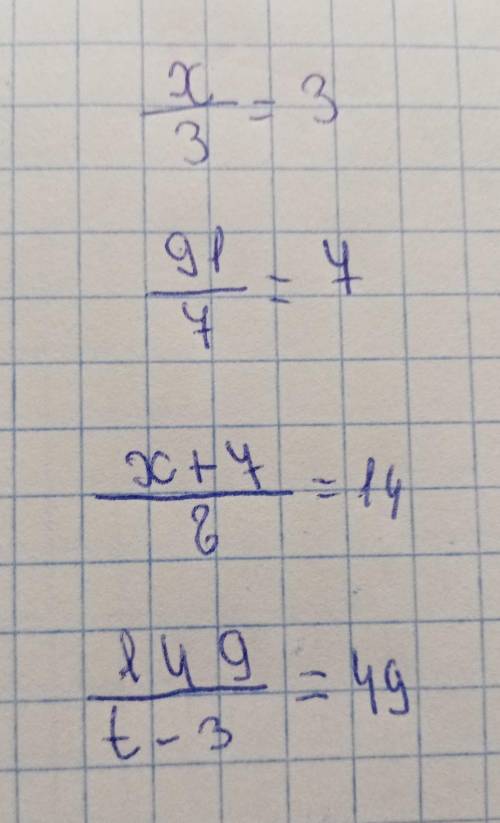 x/3 = 3
91/7 = 7
(x+7)/8 = 14
149/(t-3) = 49